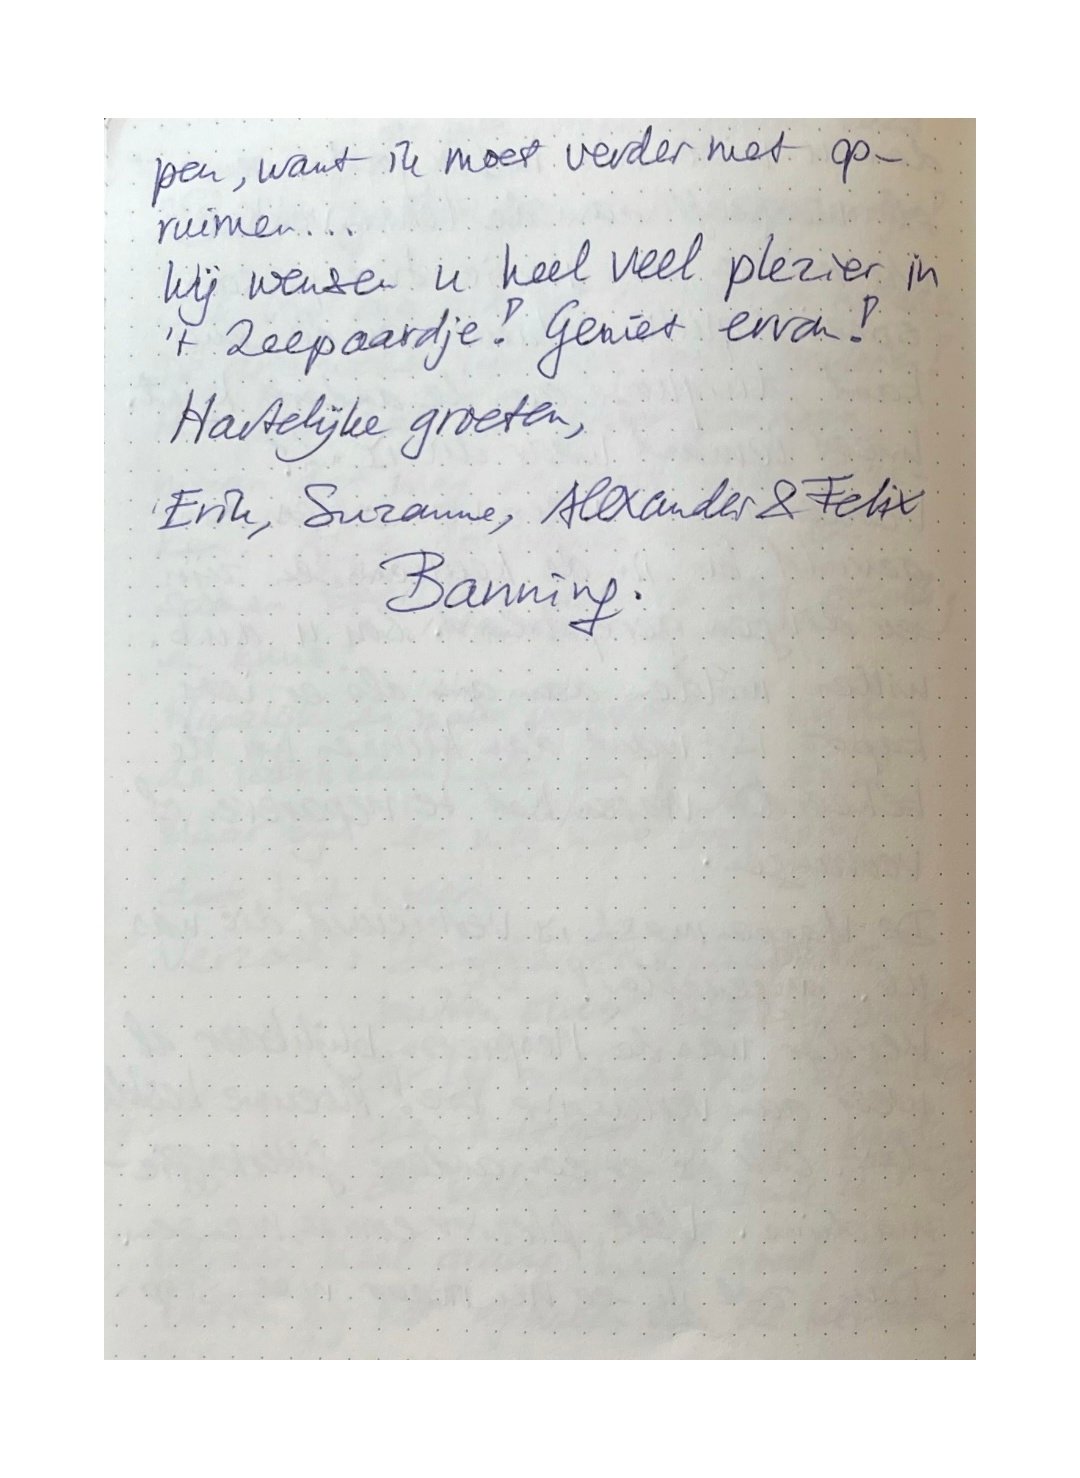 pen, want ik moet verder met op-
ruimen...
Wij wensen u heel veel plezier in
't Zeepaardje! Geniet ervan!
Hartelijke groeten,
Erik, Suzanne, Alexander & Felix
Banning.